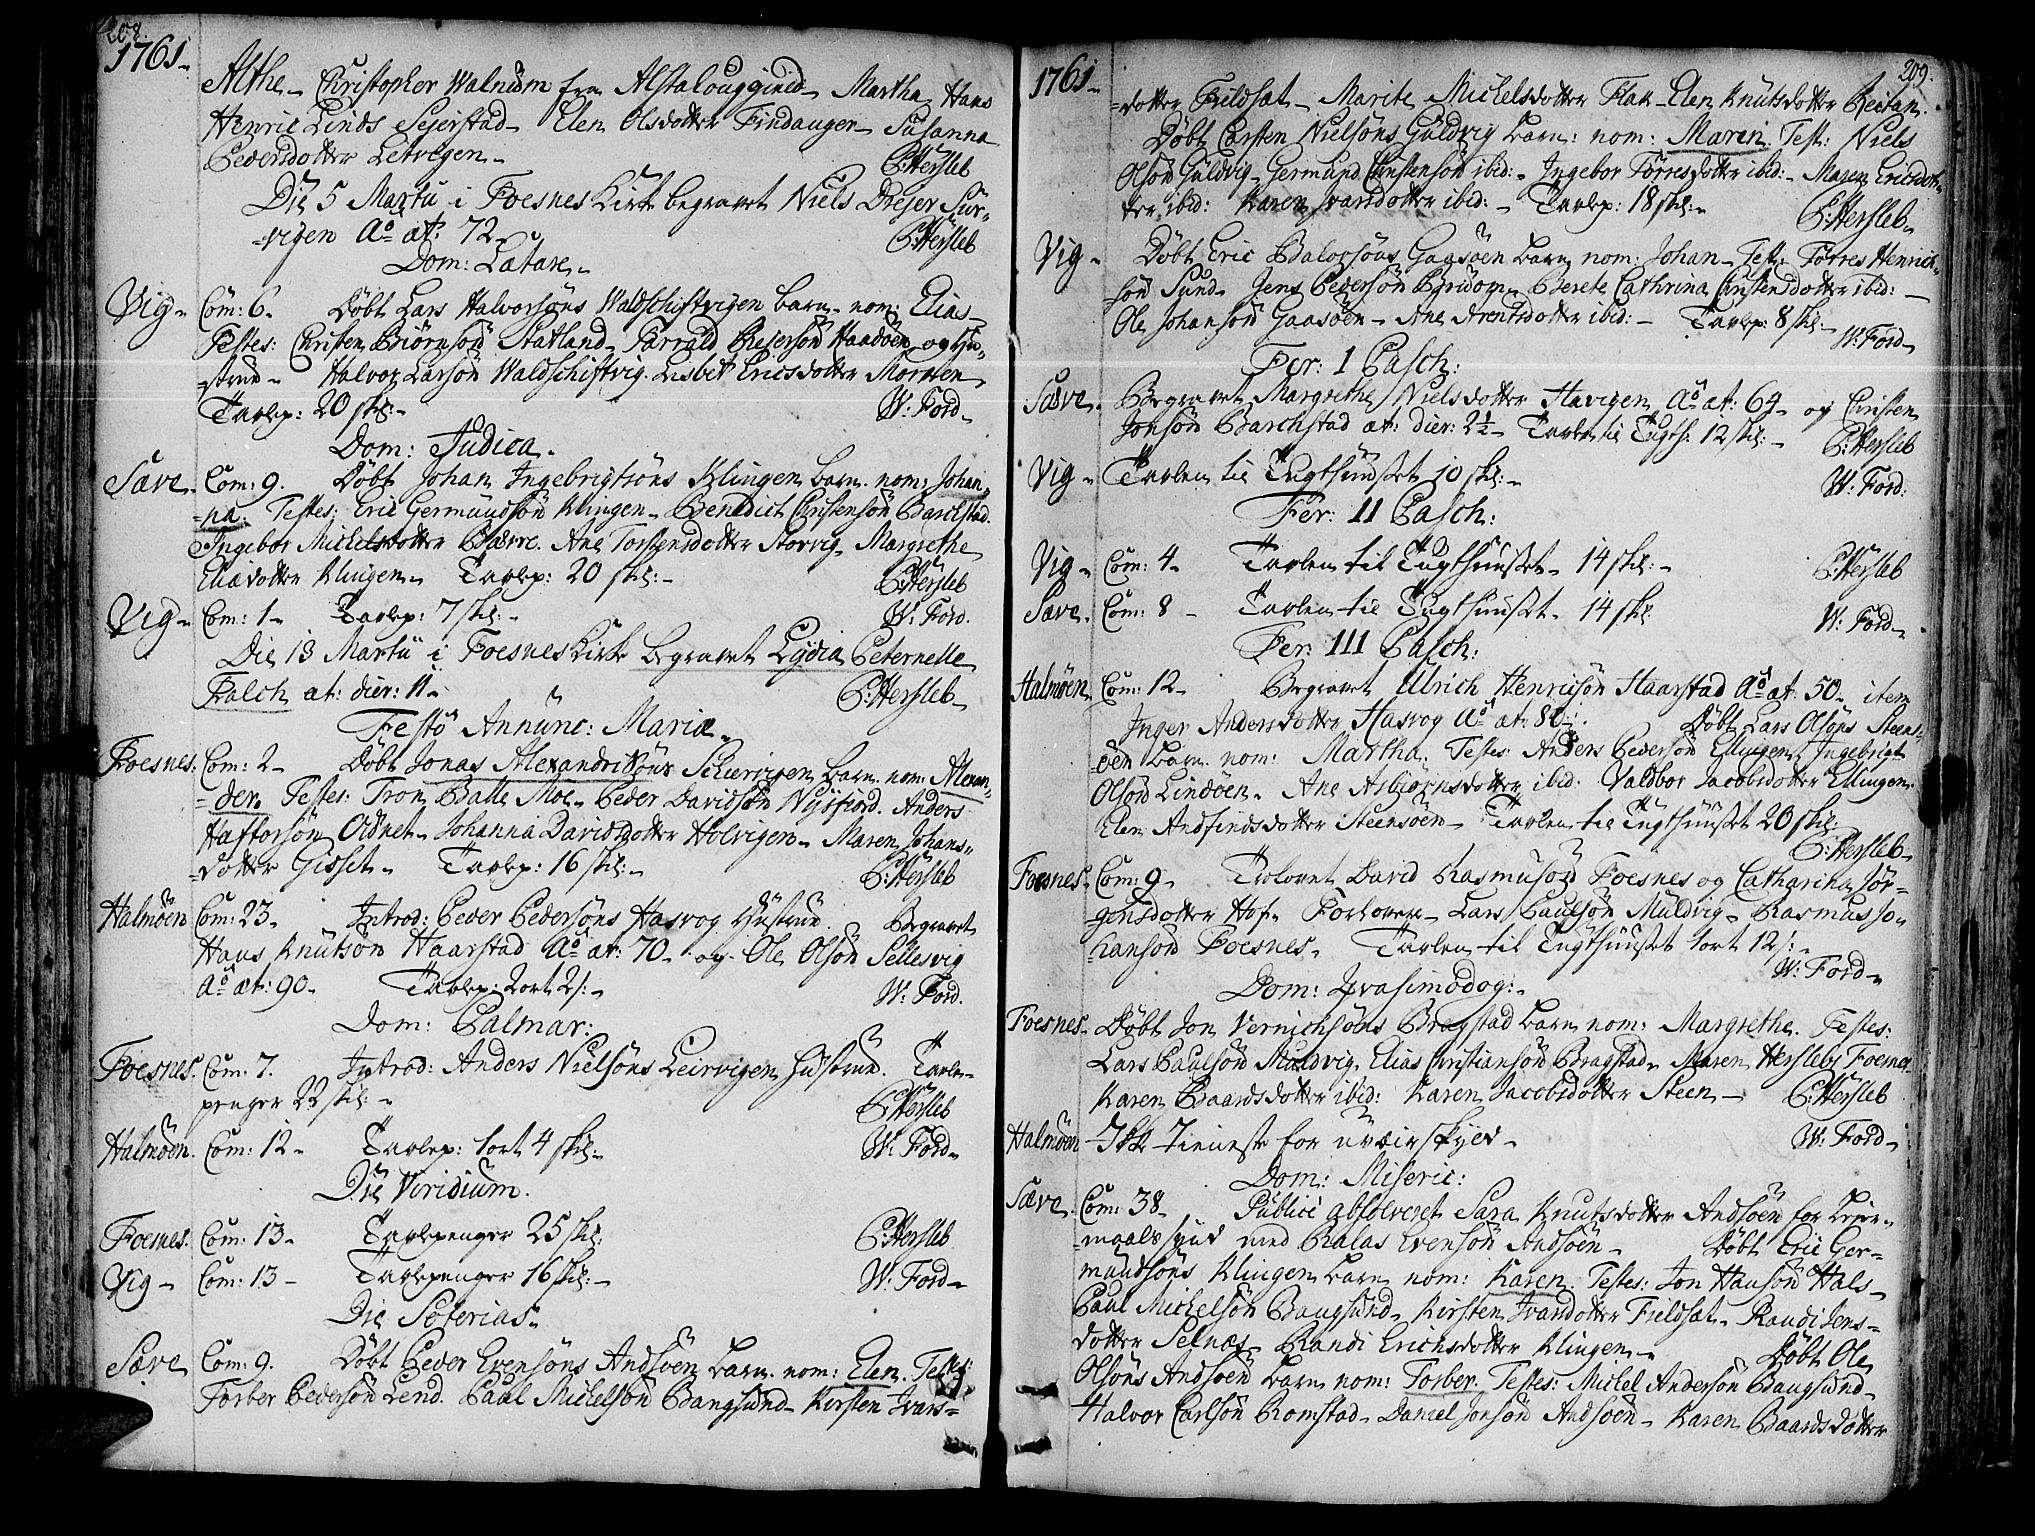 208.
1761.
Althe. Christopher Walnum fra Alstalouggiæld. Martha Hans
Henric Linds Sejerstad. Elen Olsdotter Findanger. Susanna
Pedersdotter Letvegen.
P: Hersleb
Die 5 Martii i Foesnes Kirke begravet Niels Drejer Sur-
-vigen Aö æt: 72.
P: Hersleb
Dom: Lætare.
Vig. Com: 6. Döbt Lars Halvorsöns Waldschiftvigen barn. nom: Elias
Testes: Christen Biörnsön Statland. Tarrald Rejersön Haadöen og hu-
-strue. Halvor Larsön Waldschiftvig. Lisbet Ericsdotter Morveen
Tavlep: 20 skil:
W: Ford.
Dom: Judica.
Sæve. Com: 9. Döbt Johan Ingebrigtsöns Klingen barn. nom: Johan-
-na. Testes: Eric Germundsön Klingen. Benedict Christensön Barchstad.
Ingebor Michelsdotter Sævre. Ane Torstensdotter Storvig. Margrethe
Eliædotter Klingen. Tavlep: 20 skil:
P: Hersleb
Vig. Com: 1. Tavlep: 7 skil:
W: Ford.
Die 13 Martii i Foesnes Kirke begravet Lydia Peternelle
Falch æt: dier: 11.
P: Hersleb.
Festö Annunc: Mariæ.
Foesnes. Com: 2. Döbt Jonas Alexandersöns Schervigen barn. nom: Alexan-
-der. Testes: Tron Balle Moe. Peder Davidsön Nysfiord. Anders
Hafforsön Aidnet. Johanna Davidsdotter Holvigen. Maren Johans-
-dotter Gisset. Tavlep: 16 skil:
P: Hersleb
Halmöen Com: 23. Introd: Peder Pedersöns Hasvog Hustrue. Begravet
Hans Knutsön Haarstad Aö æt: 70. og Ole Olsön Sellesvig
Aö æt: 90. Tavlep: 2 ort 2 s:
W: Ford.
Dom: Palmar:
Foesnes. Com: 7. Introd: Anders Nielsöns Leirvigen hustrue. Tavle-
penger 22 skil:
P: Hersleb
Halmöen. Com: 12. Tavlep: 1 ort 4 skil:
W: Ford.
Die Viridium.
Foesnes. Com: 13. Tavlepenger 25 skil:
P: Hersleb
Vig. Com: 13. Tavlepenger 16 skil:
W: Ford.
Die Soterias.
Sæve Com: 9. Döbt Peder Evensöns Andsöen barn. nom: Elen. Testes:
Torber Pedersön Lend. Paul Michelsön Bangsund. Kirsten Ivars-
209.
1761.
-dotter Fieldsæt. Marite Michelsdotter Flak. Elen Knutsdotter Reitan.
Döbt Carsten Nielsöns Guldvig barn: nom: Maren. Test: Niels
Olsön Guldvig. Germund Christensön ibid: Ingebor Törresdotter ibid: Maren Ericsdot-
ter ibid: Karen Ivarsdotter ibid: Tavlep: 18 skil:
P: Hersleb.
Vig. Döbt Eric Balorsöns Gaasöen barn nom: Johan. Test: Törres Henric-
sön Sund. Jens Pedersön Bridom. Berete Cathrina Christensdotter ibid:
Ole Johansön Gaasöen. Ane Arentsdotter ibid: Tavlep: 8 skil.
W: Ford.
Fer: 1 Pasch:
Sæve. Begravet Margrethe Nielsdotter Havigen Aö æt: 64. og Christen
Jonsön Barchstad æt: dier: 2½. Tavlen til Tugth: 12 skil:
P: Hersleb
Vig. Tavlen til Tugthuuset 10 skil:
W: Ford:
Fer: 11 Pasch:
Vig. Com: 4. Tavlen til Tugthuuset. 14 skil:
P: Hersleb
Sæve. Com: 8. Tavlen til Tugthuuset. 14 skil
W: Ford.
Fer: 111 Pasch:
Halmöen Com: 12. Begravet Ulrich Henricsön Haarstad Aö æt: 50. item
Inger Andersdotter Hasvog Aö æt: 80. Döbt Lars Olsöns Steens-
-öen barn nom: Martha. Testes: Anders Pedersön Ellingen. Ingebrigt
Olsön Lindöen. Ane Asbiörnsdotter ibid: Valdbor Jacobsdotter Ellingen
Elen Andfindsdotter Steensöen. Tavlen til Tugthuuset 20 skil:
P: Hersleb.
Foesnes. Com: 9. Trolovet David Rasmusön Foesnes og Catharina Jör-
gensdotter Hof. Forlovere. Lars Paulsön Muldvig. Rasmus Jo-
-hansön Foesnes. Tavlen til Tugthuuset 1 ort 12 s:
W: Ford.
Dom: Qvasimodog:
Foesnes. Döbt Jon Vernichsöns Bragstad barn nom: Margrethe. Testes:
Lars Paulsön Muldvig. Elias Christiansön Bragstad. Maren Herslebs Foesnes
Karen Baardsdotter ibid: Karen Jacobsdotter Steen.
P: Hersleb
Halmöen Ikke Tieneste for uveirskyld.
W: Ford.
Dom: Miseric:
Sæve. Com: 38. Publicè absolveret Sara Knutsdotter Andsöen for Leier-
-maals synd med Ralas Evensön Andsöen. Döbt Eric Ger-
mundsöns Klingen barn nom: Karen. Testes: Jon Hansön Hals.
Paul Michelsön Bangsund. Kirsten Ivarsdotter Fieldsæt. Randi Jens-
dotter Selnæs. Randi Erichsdotter Klingen. Döbt Ole
Olsöns Andsöen barn nom: Torber. Testes: Michel Andersön Bangsund.
Halvor Carlsön Romstad. Daniel Jonsön Andsöen. Karen Baardsdotter